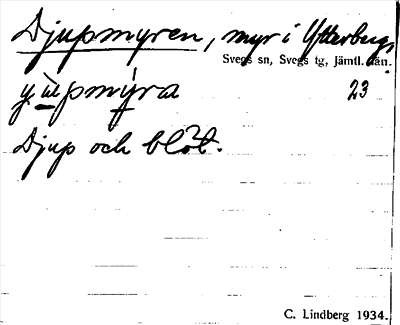 Djupmyren, myr i Ytterberg,
Svegs sn, Svegs tg, Jämtl. län.
23
Djup och blöt.
C. Lindberg 1934.